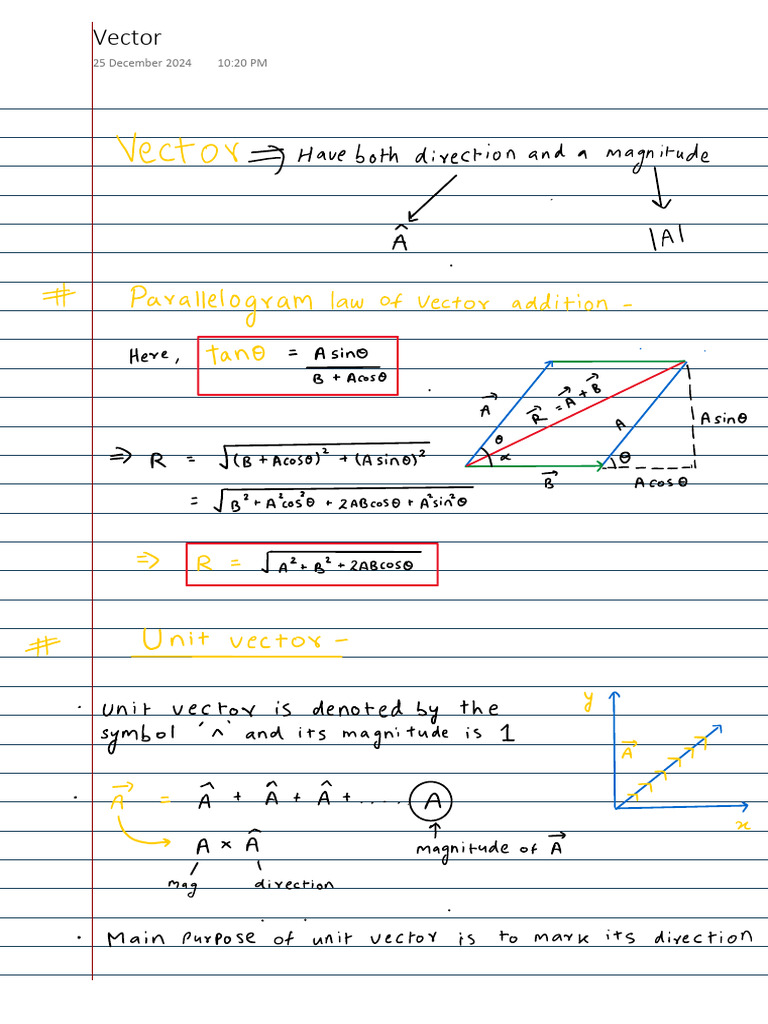 Vector
25 December 2024 10:20 PM
Vector ⇒ Have both direction and a magnitude
Â |A|
# Parallelogram law of vector addition -
Here, tanθ = A sinθ / B + A cosθ
⇒ R = √(B + A cosθ)² + (A sinθ)²
= √B² + A²cos²θ + 2AB cosθ + A²sin²θ
⇒ R = √A² + B² + 2AB cosθ
A⃗
R⃗ = A⃗ + B⃗
A
A sinθ
θ
α
θ
B⃗
A cosθ
# Unit vector -
· Unit vector is denoted by the
symbol '^' and its magnitude is 1
y
A⃗
x
· A⃗ = Â + Â + Â + ..... A
A × Â
magnitude of A⃗
mag direction
· Main purpose of unit vector is to mark its direction